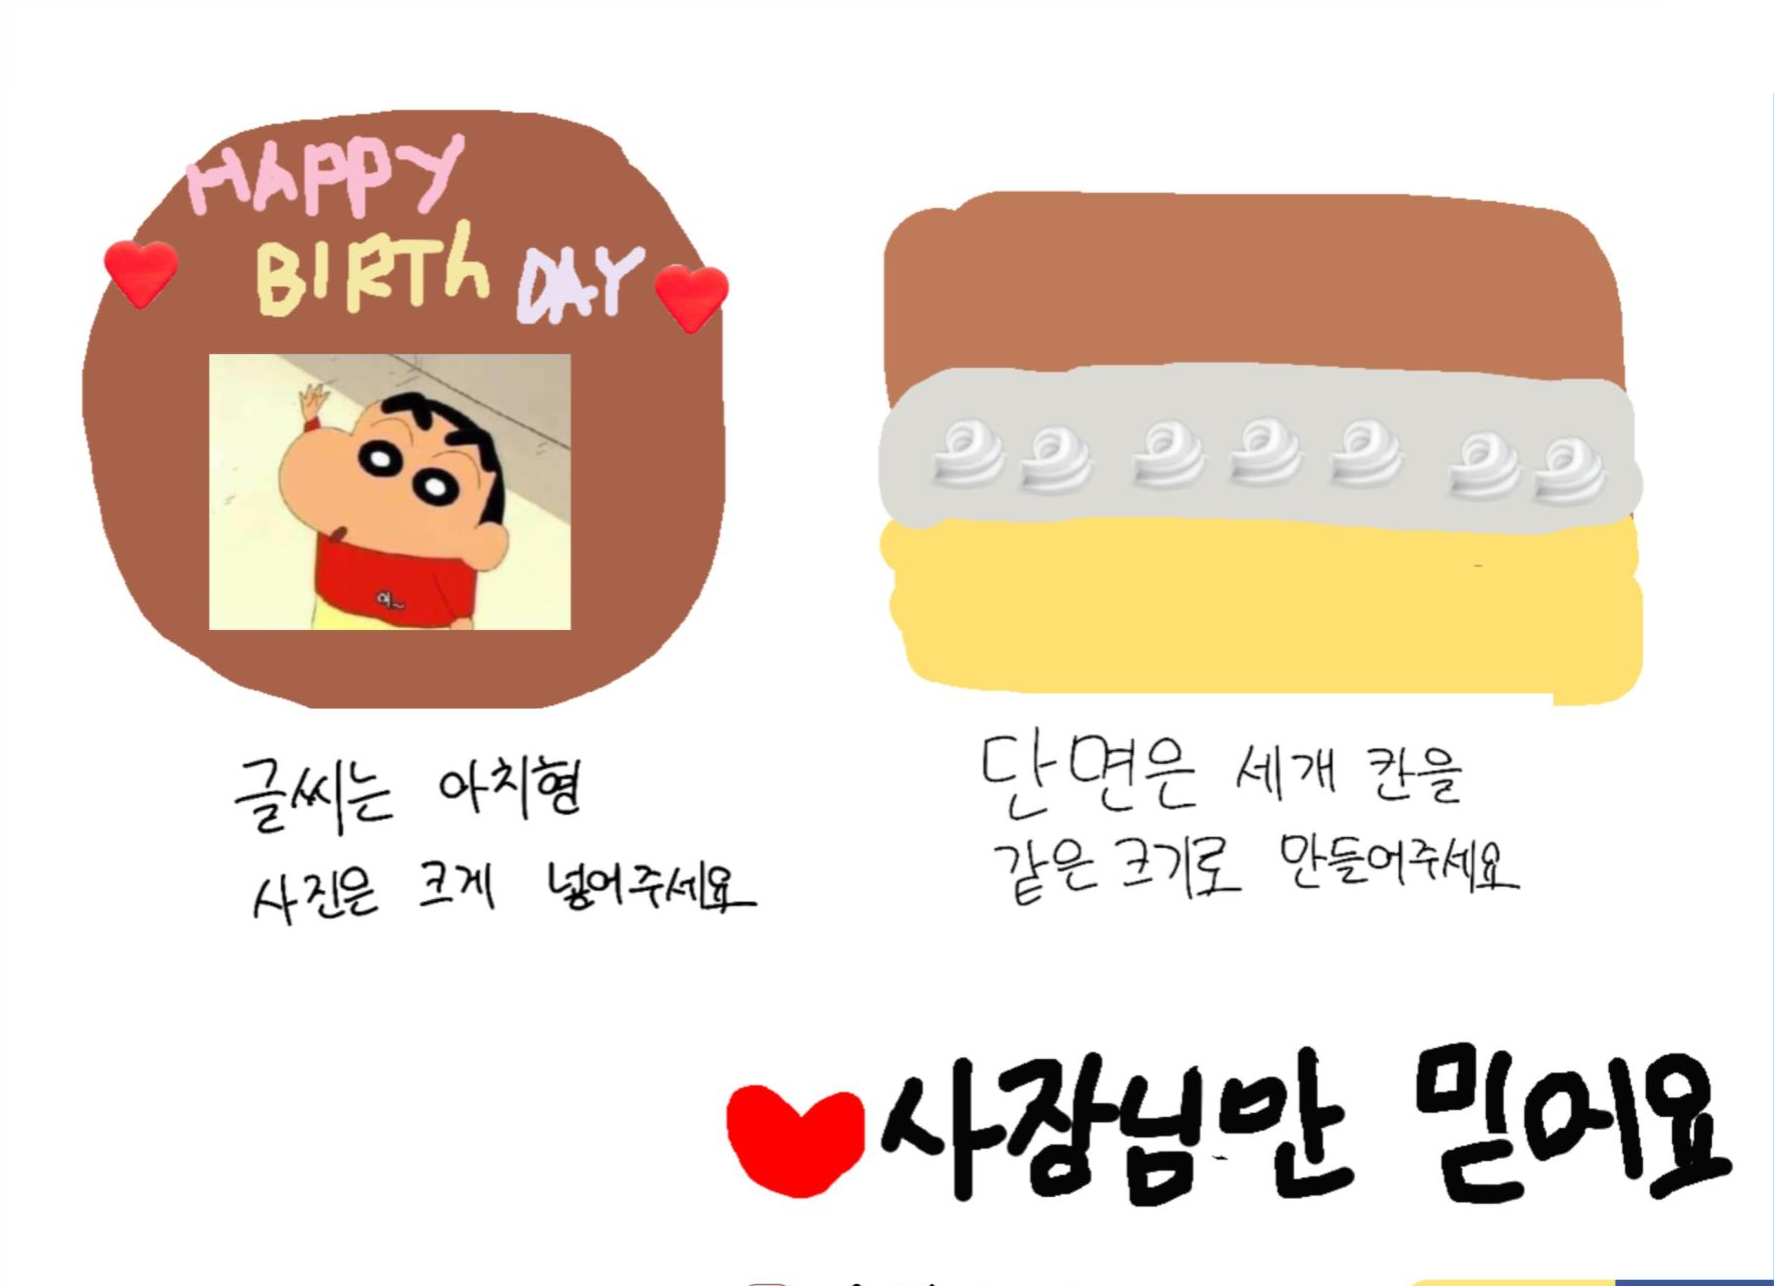 HAPPY
BIRTh DAY
어~
글씨는 아치형
사진은 크게 넣어주세요
단면은 세개 칸을
같은 크기로 만들어주세요
사장님만 믿어요